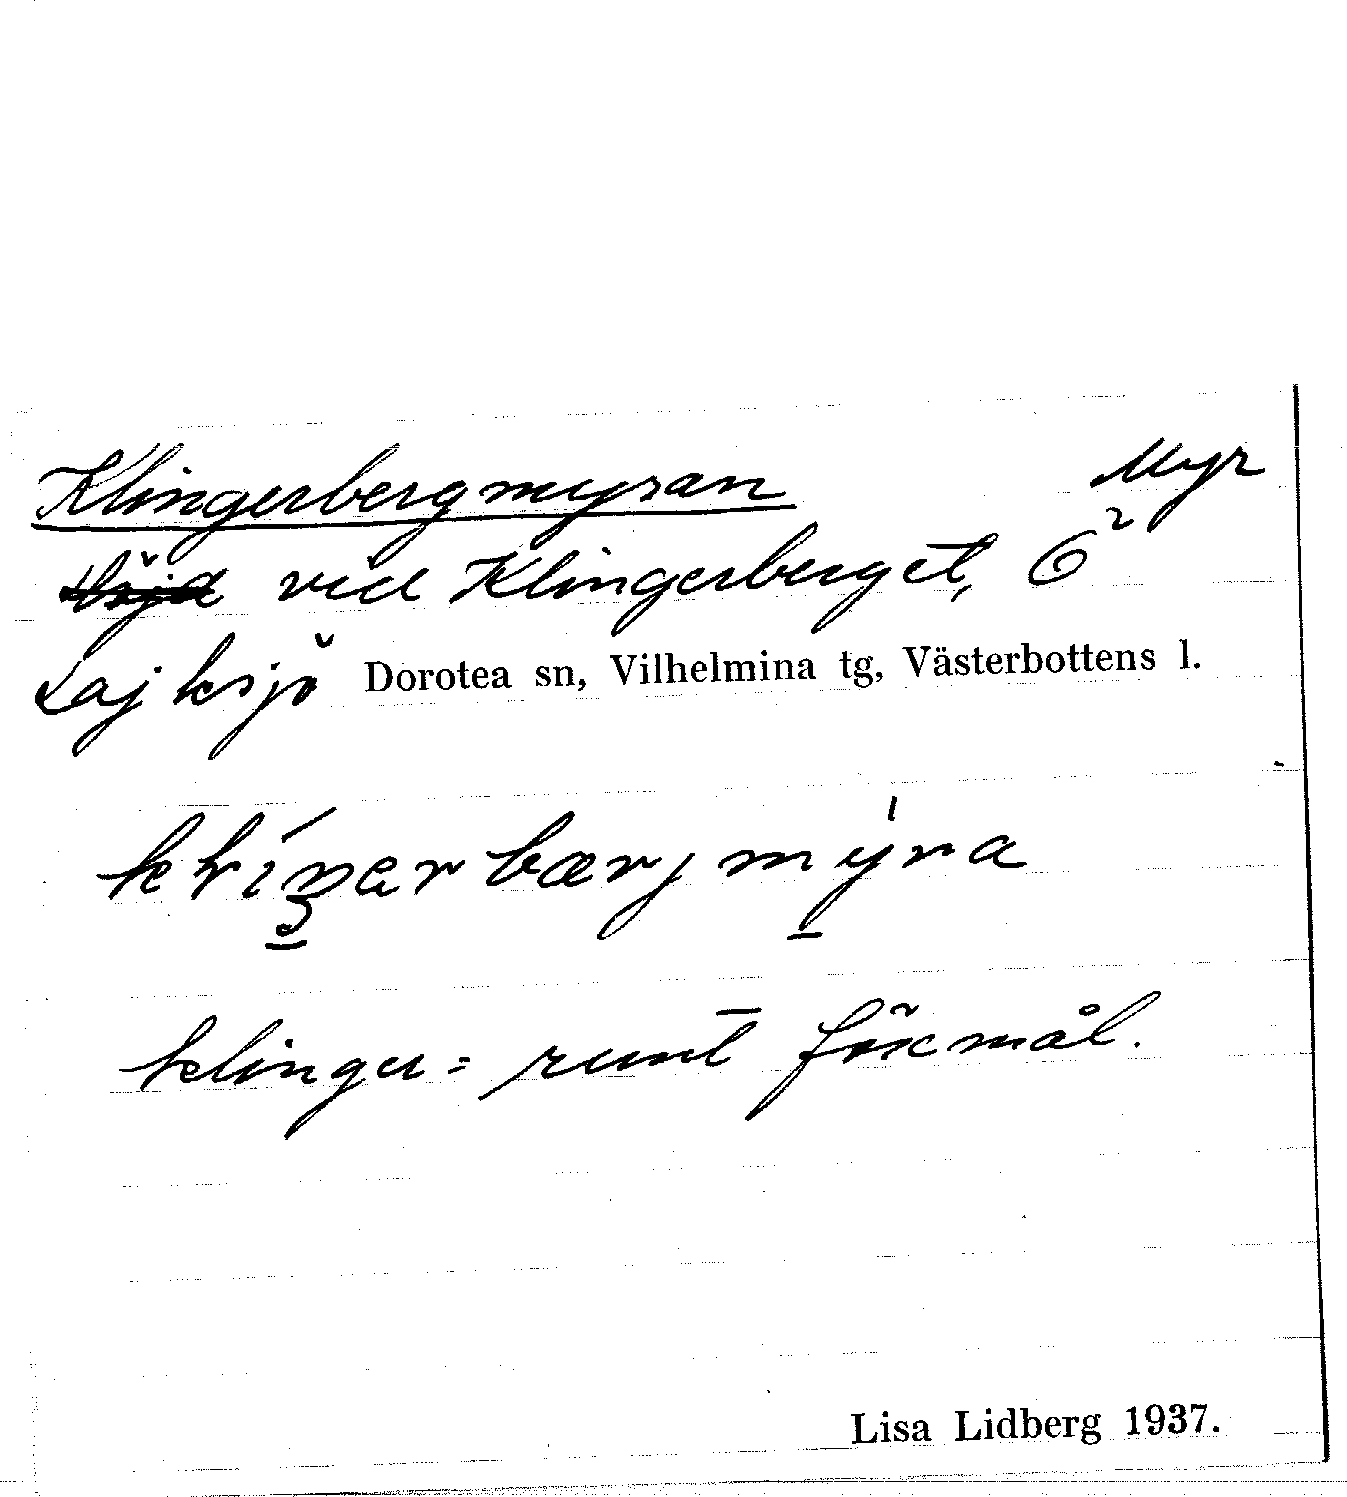 Klingerbergmyran Myr
vid Klingerberget, Ö²
Lajksjö Dorotea sn, Vilhelmina tg, Västerbottens l.
klinger = runt föremål.
Lisa Lidberg 1937.